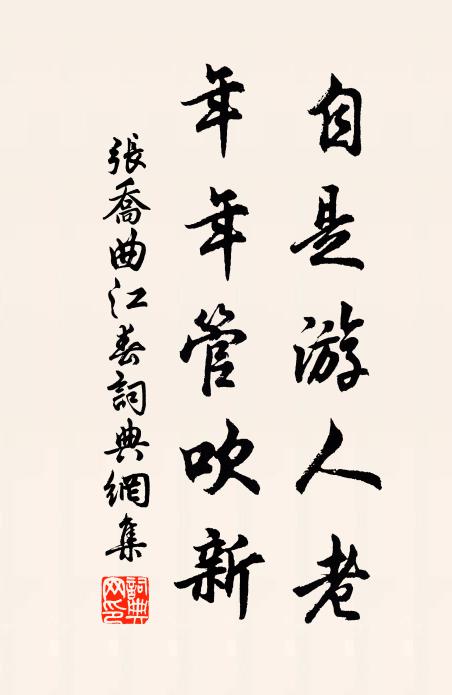 自是游人老
年年管吹新
張喬曲江春詞典網集
詞典網印